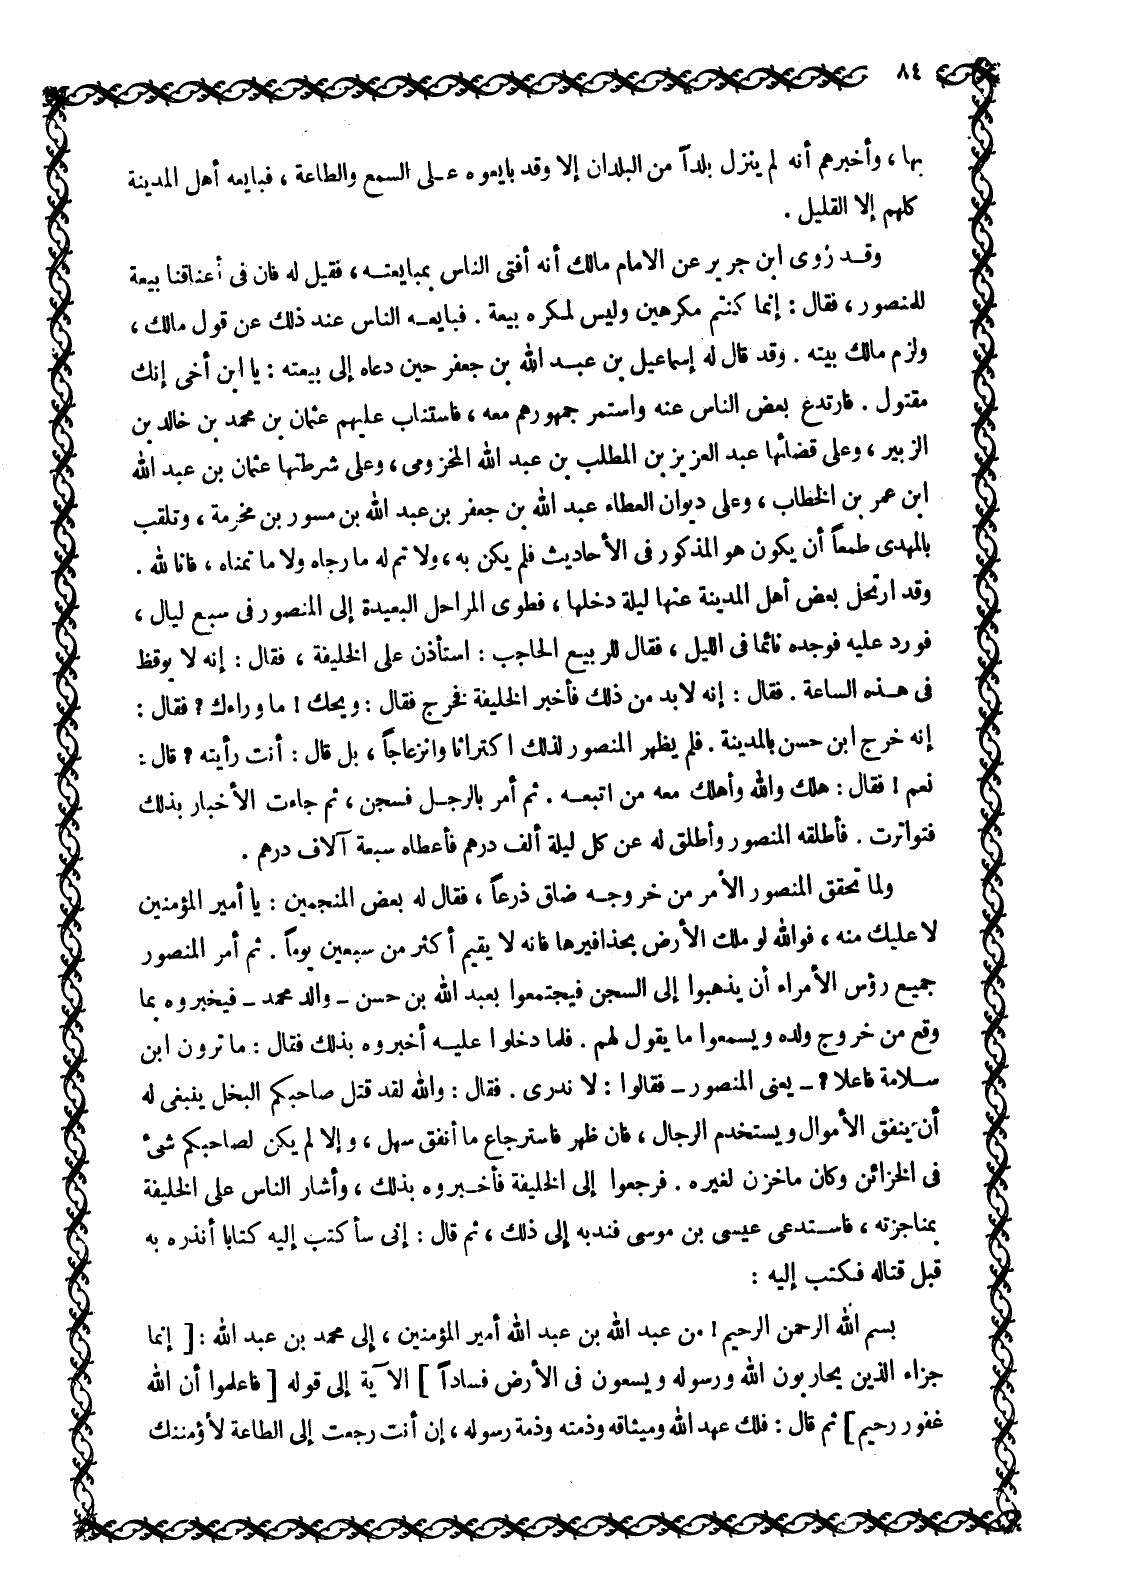 ٨٤
بها ، وأخبرهم أنه لم ينزل بلداً من البلدان إلا وقد بايعوه على السمع والطاعة ، فبايعه أهل المدينة
كلهم إلا القليل .
وقد روى ابن جرير عن الامام مالك أنه أفتى الناس بمبايعته ، فقيل له فان فى أعناقنا بيعة
للمنصور ، فقال : إنما كنتم مكرهين وليس لمكره بيعة . فبايعه الناس عند ذلك عن قول مالك ،
ولزم مالك بيته . وقد قال له إسماعيل بن عبد الله بن جعفر حين دعاه إلى بيعته : يا ابن أخى إنك
مقتول . فارتدغ بعض الناس عنه واستمر جمهورهم معه ، فاستناب عليهم عثمان بن محمد بن خالد بن
الزبير ، وعلى قضائها عبد العزيز بن المطلب بن عبد الله المخزومى ، وعلى شرطتها عثمان بن عبد الله
ابن عمر بن الخطاب ، وعلى ديوان العطاء عبد الله بن جعفر بن عبد الله بن مسور بن مخرمة ، وتلقب
بالمهدى طمعاً أن يكون هو المذكور فى الأحاديث فلم يكن به ، ولا تم له ما رجاه ولا ما تمناه ، فانا لله .
وقد ارتحل بعض أهل المدينة عنها ليلة دخلها ، فطوى المراحل البعيدة إلى المنصور فى سبع ليال ،
فورد عليه فوجده نائما فى الليل ، فقال للربيع الحاجب : استأذن على الخليفة ، فقال : إنه لا يوقظ
فى هذه الساعة . فقال : إنه لابد من ذلك فأخبر الخليفة فخرج فقال : ويحك ! ما وراءك ? فقال :
إنه خرج ابن حسن بالمدينة . فلم يظهر المنصور لذلك اكتراثا وانزعاجاً ، بل قال : أنت رأيته ? قال :
نعم ! فقال : هلك والله وأهلك معه من اتبعه . ثم أمر بالرجل فسجن ، ثم جاءت الأخبار بذلك
فتواترت . فأطلقه المنصور وأطلق له عن كل ليلة ألف درهم فأعطاه سبعة آلاف درهم .
ولما تحقق المنصور الأمر من خروجه ضاق ذرعاً ، فقال له بعض المنجمين : يا أمير المؤمنين
لا عليك منه ، فوالله لو ملك الأرض بحذافيرها فانه لا يقيم أكثر من سبعين يوماً . ثم أمر المنصور
جميع رؤس الأمراء أن يذهبوا إلى السجن فيجتمعوا بعبد الله بن حسن - والد محمد - فيخبروه بما
وقع من خروج ولده ويسمعوا ما يقول لهم . فلما دخلوا عليه أخبروه بذلك فقال : ما ترون ابن
سلامة فاعلا ? - يعنى المنصور - فقالوا : لا ندرى . فقال : والله لقد قتل صاحبكم البخل ينبغى له
أن ينفق الأموال ويستخدم الرجال ، فان ظهر فاسترجاع ما أنفق سهل ، وإلا لم يكن لصاحبكم شىء
فى الخزائن وكان ما خزن لغيره . فرجعوا إلى الخليفة فأخبروه بذلك ، وأشار الناس على الخليفة
بمناجزته ، فاستدعى عيسى بن موسى فندبه إلى ذلك ، ثم قال : إنى سأكتب إليه كتابا أنذره به
قبل قتاله فكتب إليه :
بسم الله الرحمن الرحيم ! من عبد الله بن عبد الله أمير المؤمنين ، إلى محمد بن عبد الله : [ إنما
جزاء الذين يحاربون الله ورسوله ويسعون فى الأرض فساداً ] الآية إلى قوله [ فاعلموا أن الله
غفور رحيم ] ثم قال : فلك عهد الله وميثاقه وذمته وذمة رسوله ، إن أنت رجعت إلى الطاعة لأؤمننك